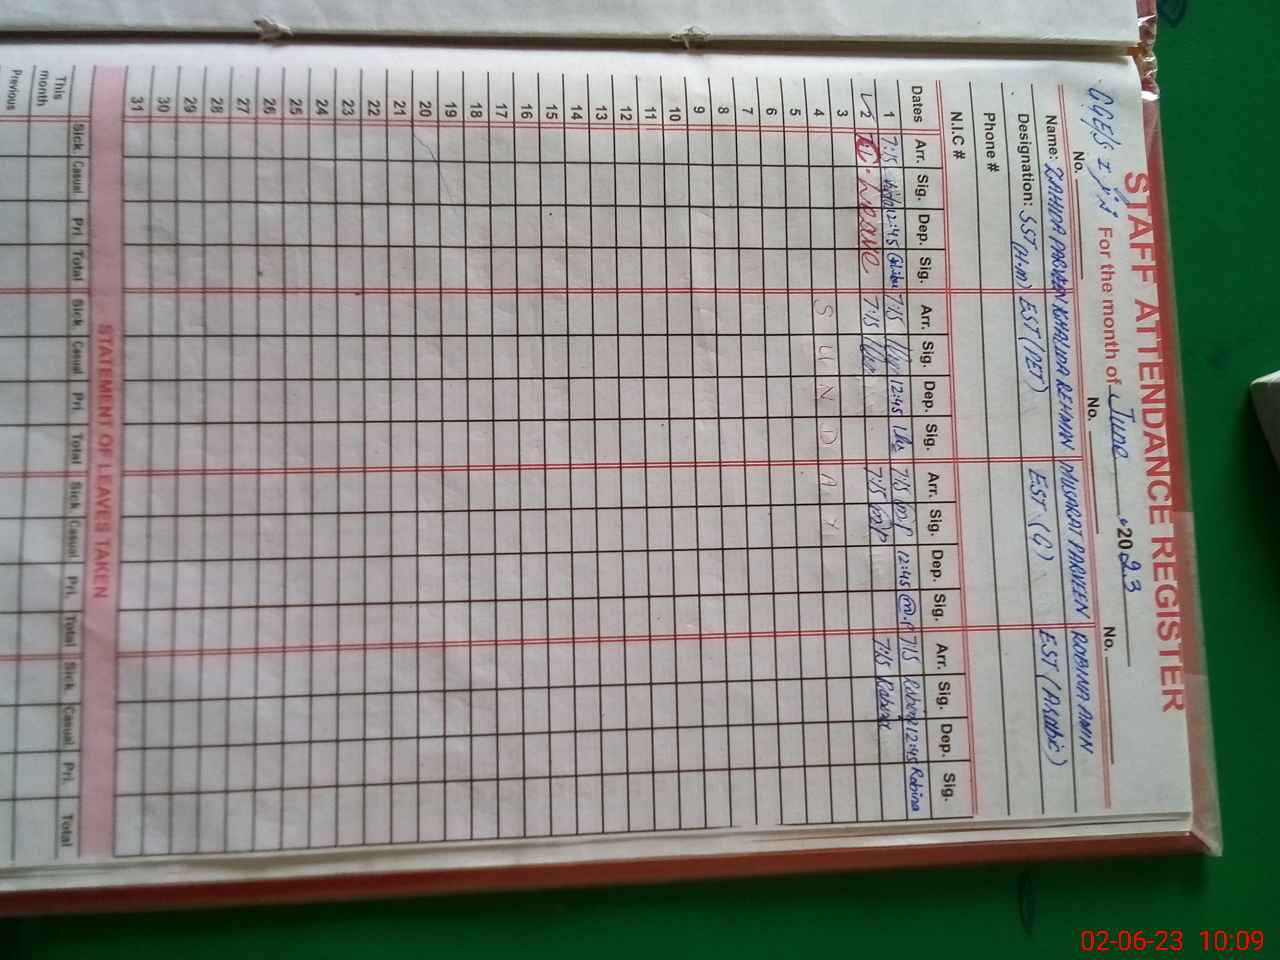 STAFF ATTENDANCE REGISTER
For the month of June 2023
No. No. No.
Name: ZAHIDA PARVEEN KHALIDA REHMAN MUSARAT PARVEEN ROBINA AMIN
Designation: SST (H.M) EST (PET) EST (G) EST (Arabic)
Phone #
N.I.C #
Dates Arr. Sig. Dep. Sig. Arr. Sig. Dep. Sig. Arr. Sig. Dep. Sig. Arr. Sig. Dep. Sig.
1 7:15 12:45 7:15 12:45 7:15 m.P 12:45 m.P 7:15 Robina 12:45 Robina
2 Leave 7:15 7:15 m.P 7:15 Robina
3
4 S U N D A Y
5
6
7
8
9
10
11
12
13
14
15
16
17
18
19
20
21
22
23
24
25
26
27
28
29
30
31
STATEMENT OF LEAVES TAKEN
Sick. Casual. Pri. Total Sick. Casual. Pri. Total Sick. Casual. Pri. Total Sick. Casual. Pri. Total
This month
Previous
02-06-23 10:09